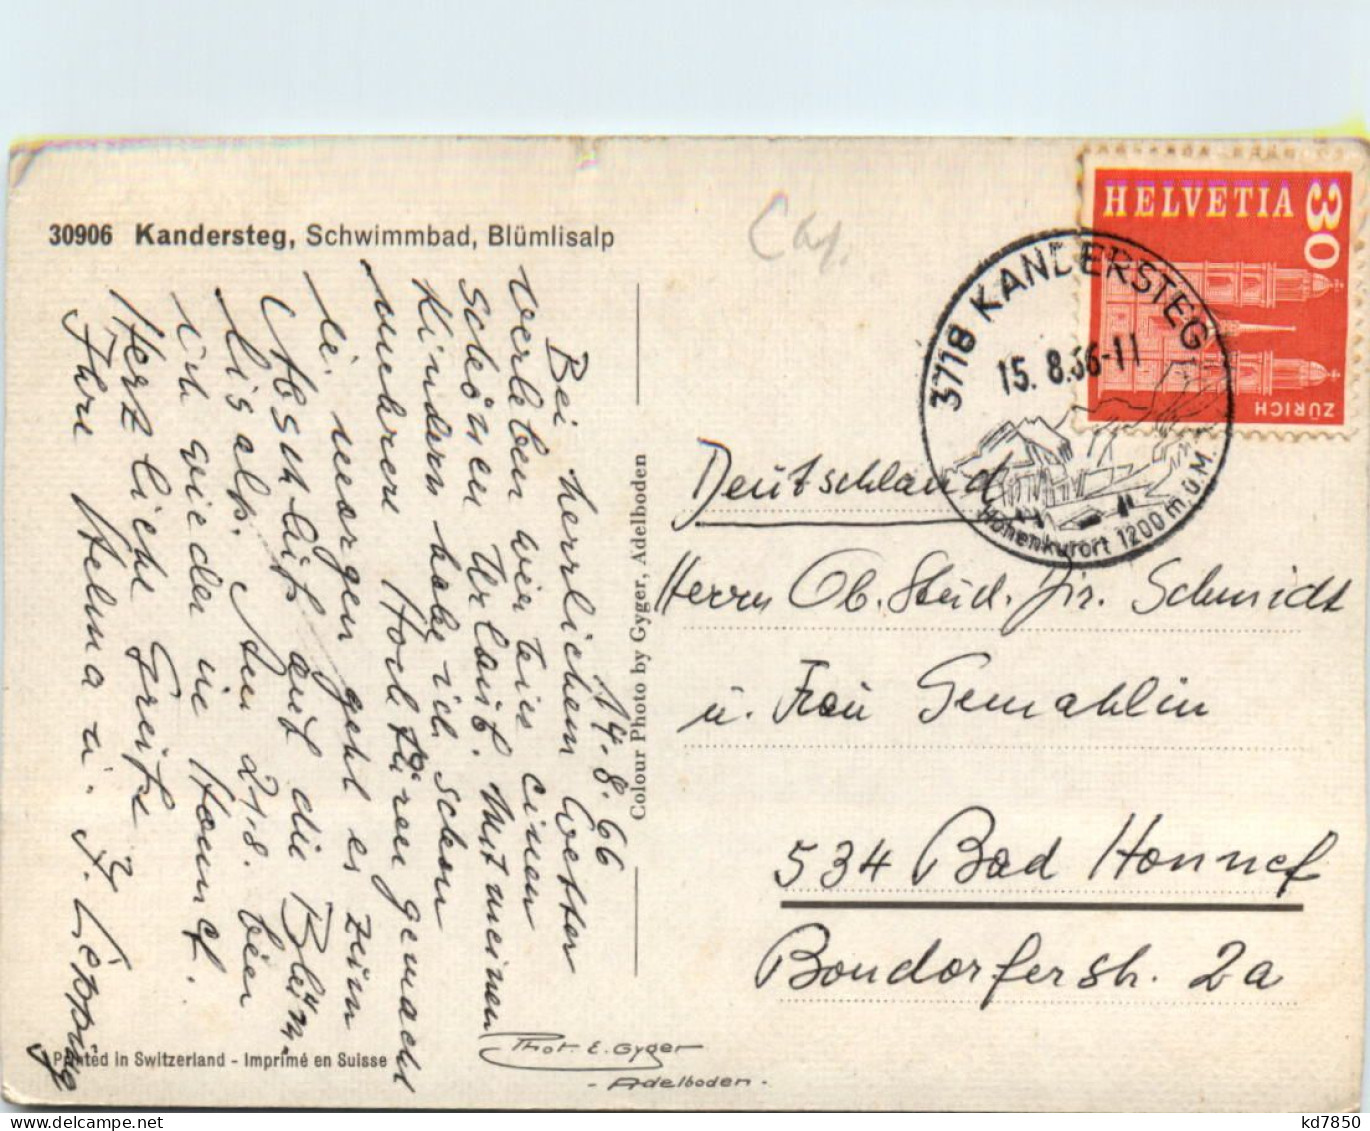 30906 Kandersteg, Schwimmbad, Blümlisalp
14.8.66
Bei herrlichem Wetter
verleben wir hier einen
schönen Urlaub. Mit meinen
Kindern habe ich schon
mehrere Hochturen gemacht
morgen geht es zum
Abschluß auf die Blüm-
lisalp. Am 21.8. bin
ich wieder in Honnef.
Herzliche Grüße
Ihre Helma u.
Colour Photo by Gyger, Adelboden
Printed in Switzerland - Imprimé en Suisse
Phot. E. Gyger
- Adelboden -
HELVETIA
30
ZÜRICH
3718 KANDERSTEG
15. 8.66-11
Höhenkurort 1200 m.ü.M.
Deutschland
Herrn Ob. Stud. Dir. Schmidt
u. Frau Gemahlin
534 Bad Honnef
Bondorferstr. 2a
kd7850